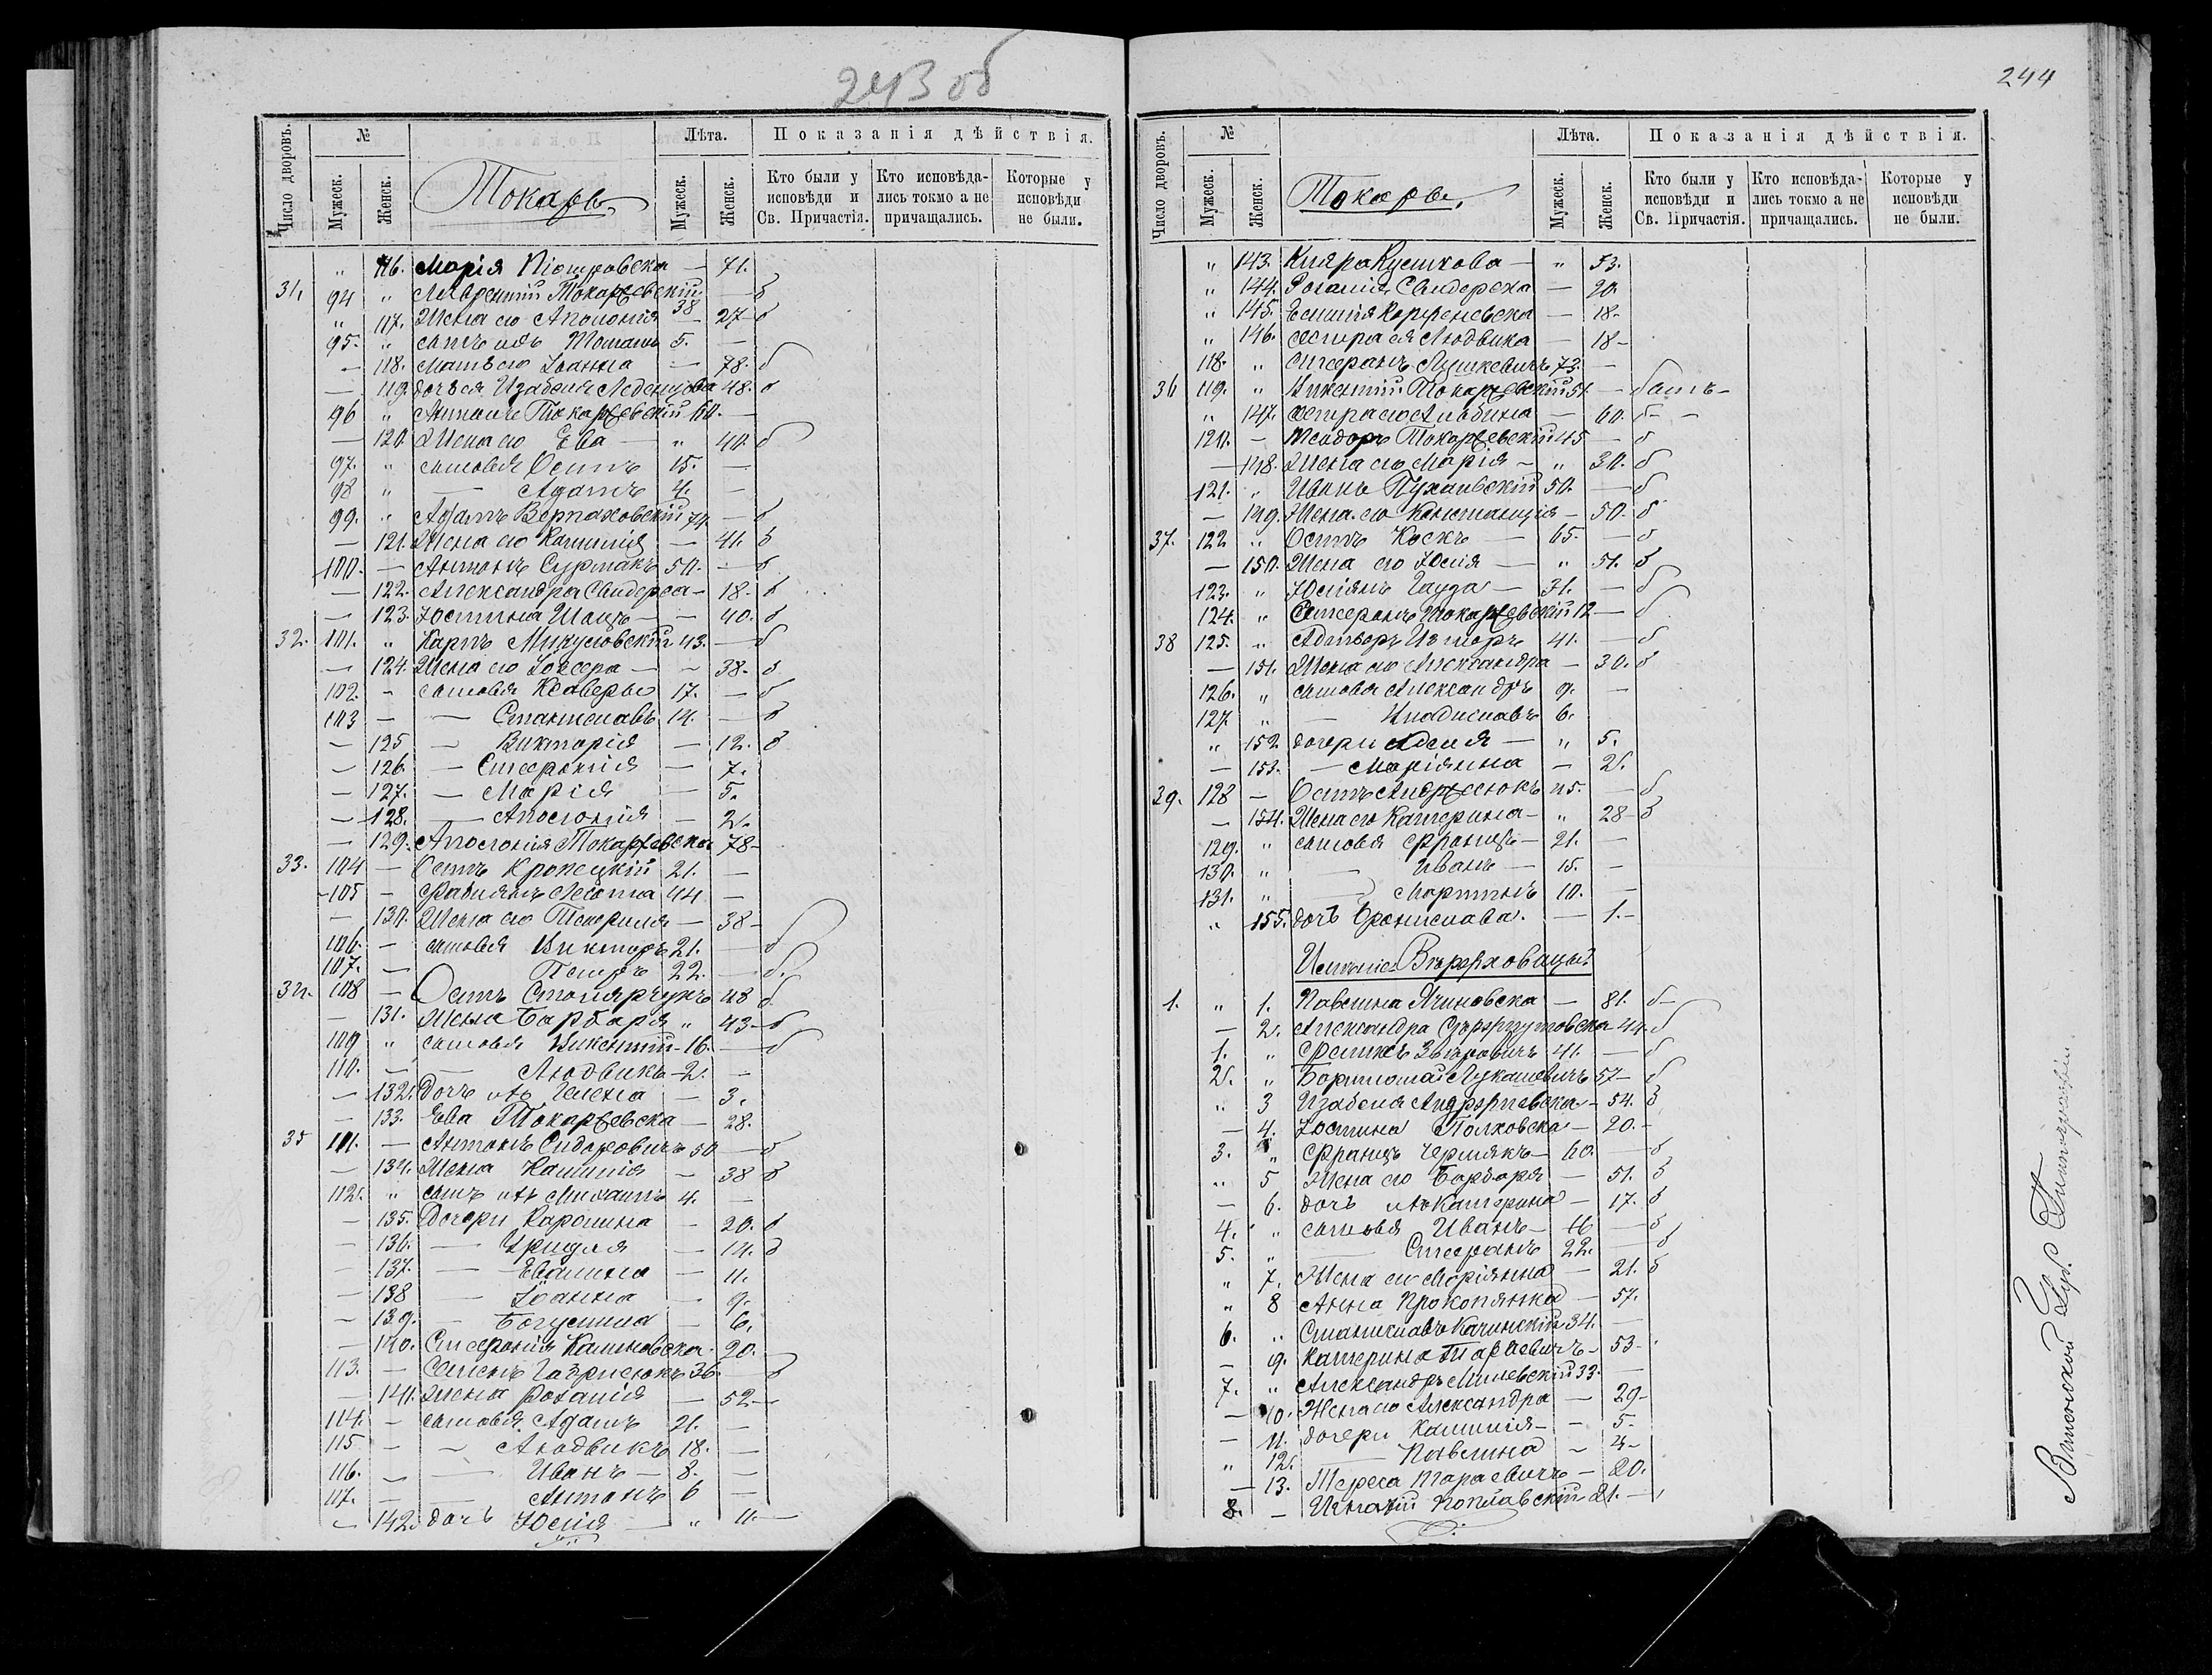 243 об
Число дворовъ. № Лѣта. Показанія дѣйствія.
Мужеск. Женск. Токаръ Мужеск. Женск. Кто были у исповѣди и Св. Причастія. Кто исповѣдались токмо а не причащались. Которые у исповѣди не были.
" 116. Марія Піотровска — 71.
31. 94 " Лаврентій Токаржевскій 38 — б
" 117. Жена его Аполонія — 27 б
95. " сынъ ихъ Томашъ 5. —
— 118. Мать его Іоанна — 78. б
— 119. дочь ея Изабеля 48. б
96 " Токаржевскій 60. —
— 120. Жена его Ева — " 40. б
97. " сыновья Осипъ 15. —
98 " — Адамъ 4. —
99. " Адамъ 74. — б
— 121. Жена его Камилія — 41. б
100. — Антонъ Сурмакъ 50. — б
— 122. Александра Свидерска — 18. б
— 123. Юстина — 40. б
32. 101. " Карпъ Микуловскій 43. — б
— 124. Жена его Іозефа — 38. б
102. — сыновья Ксаверы 17. — б
103 — — Станиславъ 14. — б
— 125 — Викторія — 12. б
— 126. — Стефанія — 7.
— 127. — Марія — 5.
— 128. — Аполонія — 2.
— 129. Аполонія Токаржевска 78 —
33. 104 — Осипъ Кропецкій 21. —
105 — Фабіянъ 44 —
— 130. Жена его — 38 —
106. — сыновья Викторъ 21. — б
107. — Петръ 22. — б.
34. 108 — Осипъ Столярчукъ 48 б
— 131. Жена Барбара " 43 — б
109 " сыновья Викентій 16. — б
110. — — Людвикъ 2. —
— 132. Дочь ихъ Гелена — 3.
— 133. Ева Токаржевска — 28.
35 111. — Антонъ Сидоровичъ 50 — б
— 134. Жена Камилія — 38 б
112. " сынъ ихъ Михаилъ 4. —
— 135. Дочери Каролина — 20. б
— 136. — Уршуля — 14. б
— 137. — Евелина — 11.
— 138 — Іоанна — 9.
— 139. — Богумила — 6.
— 140. Стефанія Калиновска 20. —
113. — Семенъ Гаврисюкъ 36. — б
— 141. Жена Розалія — 52 —
114. — сыновья Адамъ 21. —
115 — — Людвикъ 18. —
116. — — Иванъ — 8. —
117. — — Антонъ 6 —
— 142. дочь Юлія — " 11. —
244
Число дворовъ. № Лѣта. Показанія дѣйствія.
Мужеск. Женск. Токаръ. Мужеск. Женск. Кто были у исповѣди и Св. Причастія. Кто исповѣдались токмо а не причащались. Которые у исповѣди не были.
" 143. Кляра — " 53.
" 144. Розалія Свидерска — 20.
" 145. Емилія — 18.
" 146. сестра ея Людвика — 18 —
118. " Стефанъ Лушкевичъ 73. —
36 119. " Викентій Токаржевскій 51. — былъ —
" 147. сестра его Альбина — 60. б —
120. — Теодоръ Токаржевскій 45 — б
— 148. Жена его Марія — " 30. б
121. " Иванъ Пухальскій 50. — б
— 149. Жена его Констанція — 50. б
37. 122 " Осипъ Коскъ — 65. — б
— 150. Жена его Юлія — " 51. б
123. " Юліянъ Гауда — 31. — б
124. " Стефанъ Токаржевскій 12 — б
38 125. " 41. — б
— 151. Жена его Александра — 30. б
126. " сынова Александръ 9. —
127. " — Владиславъ 6.
" 152. дочери Аделя — " 5.
— 153. — Маріянна — 2.
39. 128 — Осипъ Андржеюкъ 45. — б
— 154. Жена его Катерина — " 28 — б
129. " сыновья Францъ — 21. —
130. " — Иванъ — 15. —
131. " — Мартинъ 10. —
" 155. дочь Бронислава. — 1. —
Имѣніе
1. " 1. Павлина Ячиновска — 81. б —
— 2. Александра — 44. б
1. " Феликсъ 41. — б
2. " Бартломѣй Лукашевичъ 57 — б
" 3 Изабеля Андржеевска — 54. б
— 4. Юстина Полховска — 20. —
3. " Францъ Чернякъ — 60. — б
" 5 Жена его Барбара — 51. б
— 6. дочь ихъ Катерина — 17. б
4. " сыновья Иванъ — 16 — б
5. " — Стефанъ 22. — б
" 7. Жена его Маріянна — 21. б
" 8 Анна Прокопянка — 57.
6. " Станиславъ Качинскій 34. —
— 9. Катерина Тарасевичъ — 53 —
7. " Александръ Милевскій 33. —
— 10. Жена его Александра — 29 —
— 11. дочери Камилія — 5 —
" 12. — Павлина — 4 —
— 13. Тереса Тарасевичъ — 20.
8. — Игнатій Поплавскій 21. —
Виленской Губ. Типографіи